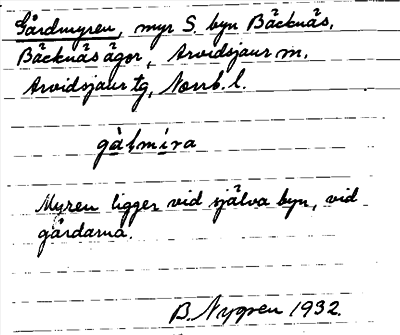 Gårdmyren, myr S. byn Bäcknäs,
Bäcknäs ägor, Arvidsjaur m.
Arvidsjaur tg, Norrb. l.
gàlmíra
Myren ligger vid själva byn, vid
gårdarna.
B. Nygren 1932.